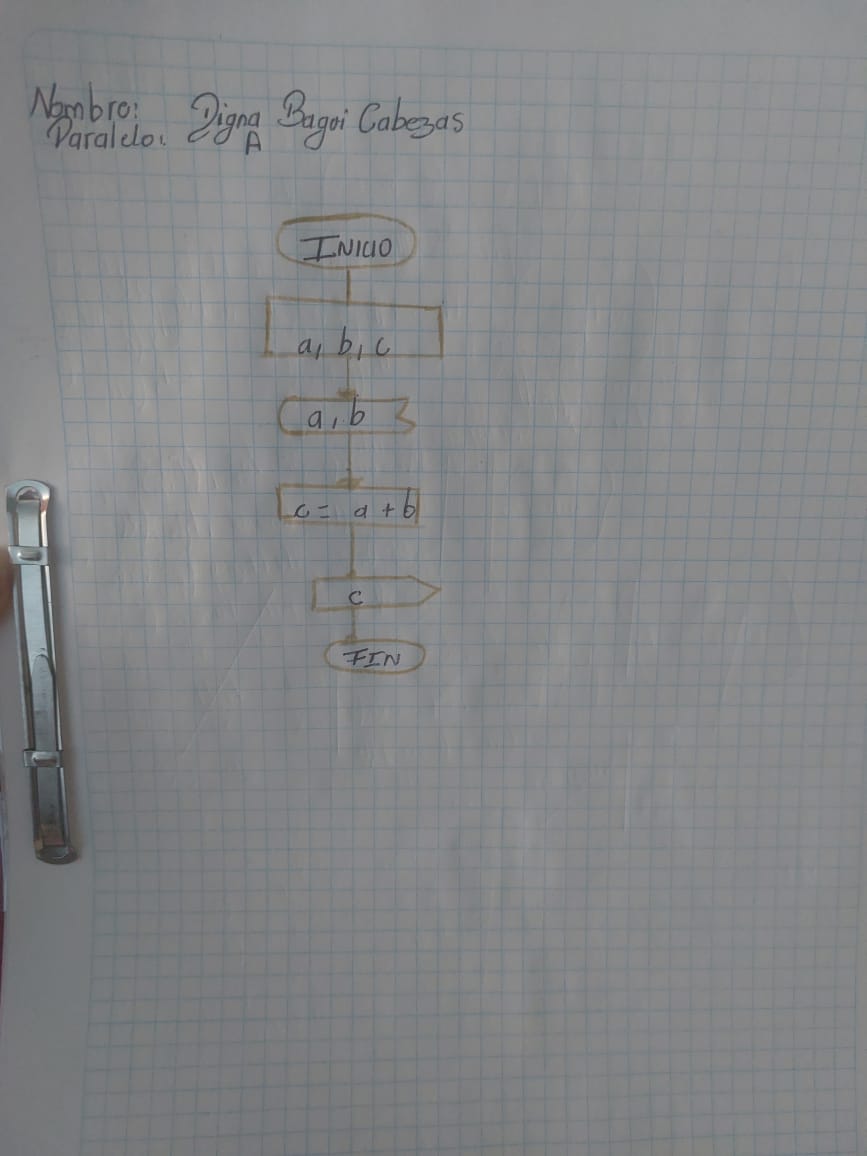 Nombre: Digna Bagoi Cabezas
Paralelo: A
INICIO
a, b, c
a, b
c = a + b
c
FIN